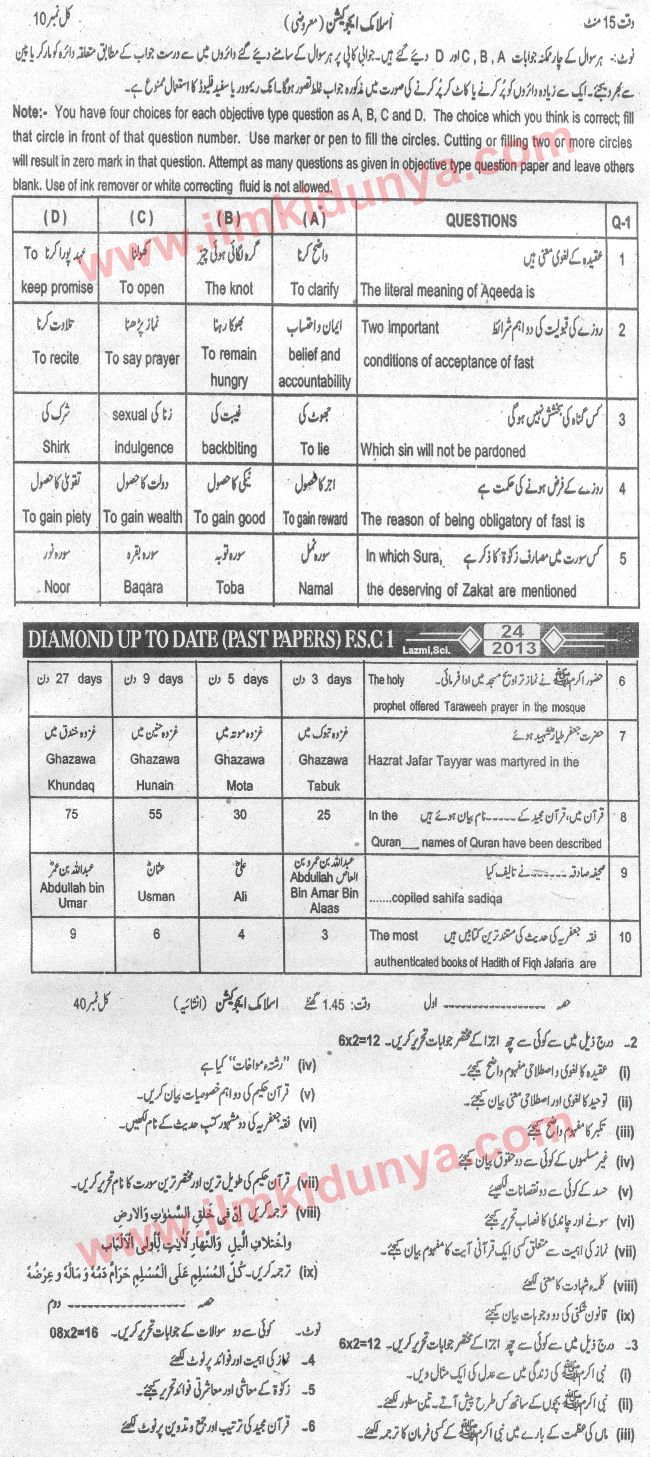 وقت 15 منٹ    اسلامک ایجوکیشن (معروضی)    کل نمبر 10
نوٹ:- ہر سوال کے چار ممکنہ جوابات A, B, C اور D دیئے گئے ہیں۔ جوابی کاپی پر ہر سوال کے سامنے دیئے گئے دائروں میں سے درست جواب کے مطابق متعلقہ دائرہ کو مارکر یا پین
سے بھر دیجئے۔ ایک سے زیادہ دائروں کو پُر کرنے یا کاٹ کر پُر کرنے کی صورت میں مذکورہ جواب غلط تصور ہوگا۔ انک ریموور یا سفید فلیوڈ کا استعمال ممنوع ہے۔
Note:- You have four choices for each objective type question as A, B, C and D. The choice which you think is correct; fill
that circle in front of that question number. Use marker or pen to fill the circles. Cutting or filling two or more circles
will result in zero mark in that question. Attempt as many questions as given in objective type question paper and leave others
blank. Use of ink remover or white correcting fluid is not allowed.
(D) (C) (B) (A) QUESTIONS Q-1
عہد پورا کرنا To کھولنا گرہ لگائی ہوئی چیز واضح کرنا عقیدہ کے لغوی معنی ہیں 1
keep promise To open The knot To clarify The literal meaning of Aqeeda is
تلاوت کرنا نماز پڑھنا بھوکا رہنا ایمان و احتساب Two important روزے کی قبولیت کی دو اہم شرائط 2
To recite To say prayer To remain belief and conditions of acceptance of fast
hungry accountability
شرک کی زنا کی sexual غیبت کی جھوٹ کی کس گناہ کی بخشش نہیں ہوگی 3
Shirk indulgence backbiting To lie Which sin will not be pardoned
تقویٰ کا حصول دولت کا حصول نیکی کا حصول اجر کا حصول روزے کے فرض ہونے کی حکمت ہے 4
To gain piety To gain wealth To gain good To gain reward The reason of being obligatory of fast is
سورہ نور سورہ بقرہ سورہ توبہ سورہ نمل In which Sura, کس سورت میں مصارف زکوٰۃ کا ذکر ہے 5
Noor Baqara Toba Namal the deserving of Zakat are mentioned
DIAMOND UP TO DATE (PAST PAPERS) F.S.C 1 Lazmi,Sci. 24 2013
27 days دن 9 days دن 5 days دن 3 days دن The holy حضور اکرم ﷺ نے نماز تراویح مسجد میں ادا فرمائی۔ 6
prophet offered Taraweeh prayer in the mosque
غزوہ خندق میں غزوہ حنین میں غزوہ موتہ میں غزوہ تبوک میں حضرت جعفر طیارؓ شہید ہوئے 7
Ghazawa Ghazawa Ghazawa Ghazawa Hazrat Jafar Tayyar was martyred in the
Khundaq Hunain Mota Tabuk
75 55 30 25 In the قرآن میں، قرآن مجید کے ----- نام بیان ہوئے ہیں 8
Quran___ names of Quran have been described
عبداللہ بن عمرؓ عثمانؓ علیؓ عبداللہ بن عمرو بن صحیفہ صادقہ ------ نے تالیف کیا 9
Abdullah bin Usman Ali العاص Abdullah .......copiled sahifa sadiqa
Umar Bin Amar Bin
Alaas
9 6 4 3 The most فقہ جعفریہ کی حدیث کی مستند ترین کتابیں ہیں 10
authenticated books of Hadith of Fiqh Jafaria are
کل نمبر 40 اسلامک ایجوکیشن (انشائیہ) وقت: 1.45 گھنٹے حصہ ---------- اول
2۔ درج ذیل میں سے کوئی سے چھ اجزا کے مختصر جوابات تحریر کریں۔ 6x2=12
(i) عقیدہ کا لغوی و اصطلاحی مفہوم واضح کیجئے۔
(ii) توحید کا لغوی اور اصطلاحی معنی بیان کیجئے۔
(iii) تکبر کا مفہوم واضح کیجئے
(iv) غیر مسلموں کے کوئی سے دو حقوق بیان کیجئے
(v) حسد کے کوئی سے دو نقصانات لکھیئے
(vi) سونے اور چاندی کا نصاب تحریر کیجئے
(vii) نماز کی اہمیت سے متعلق کسی ایک قرآنی آیت کا مفہوم بیان کیجئے۔
(viii) کلمہ شہادت کا معنی لکھئے
(ix) قانون شکنی کی دو وجوہات بیان کیجئے
3۔ درج ذیل میں سے کوئی سے چھ اجزا کے مختصر جوابات تحریر کریں۔ 6x2=12
(i) نبی اکرم ﷺ کی زندگی میں سے عدل کی ایک مثال دیں۔
(ii) نبی اکرم ﷺ بچوں کے ساتھ کس طرح پیش آتے۔ تین سطور لکھئے۔
(iii) ماں کی عظمت کے بارے میں نبی اکرم ﷺ کے کسی فرمان کا ترجمہ لکھئے۔
(iv) "رشتہء مواخات" کیا ہے
(v) قرآن حکیم کی دو اہم خصوصیات بیان کریں۔
(vi) فقہ جعفریہ کی دو مشہور کتب حدیث کے نام لکھیں۔
(vii) قرآن حکیم کی طویل ترین اور مختصر ترین سورت کا نام تحریر کریں۔
(viii) ترجمہ کریں اِنَّ فِیْ خَلْقِ السَّمٰوٰتِ وَالْاَرْضِ
وَاخْتِلَافِ الَّیْلِ وَالنَّهَارِ لَاٰیٰتٍ لِّاُولِی الْاَلْبَابِ
(ix) ترجمہ کریں۔ كُلُّ الْمُسْلِمِ عَلَى الْمُسْلِمِ حَرَامٌ دَمُهٗ وَ مَالُهٗ وَ عِرْضُهٗ
حصہ ---------- دوم
نوٹ۔ کوئی سے دو سوالات کے جوابات تحریر کریں۔ 08x2=16
4۔ نماز کی اہمیت اور فوائد پر نوٹ لکھئے
5۔ زکوٰۃ کے معاشی اور معاشرتی فوائد تحریر کیجئے۔
6۔ قرآن مجید کی ترتیب اور جمع و تدوین پر نوٹ لکھئے
www.ilmkidunya.com
www.ilmkidunya.com